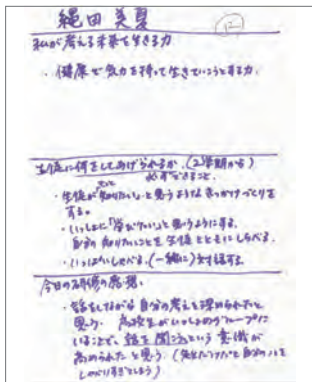 縄田 美夏
12
私が考える未来を生きる力
・健康で気力を持って生きていこうとする力.
生徒に何をしてあげられるか.(2学期から)
必ずできること.
・生徒が「知りたい」と思うようなきっかけづくりを
する。
・いっしょに「学びたい」と思うようにする.
自分の知りたいことを生徒とともにしらべる.
・いっぱいしゃべる.(一緒に)対話する.
今日の研修の感想.
・話をしながら自分の考えを深められたと
思う. 高校生がいっしょのグループに
いることで、話を聞こうという意識が
高められたと思う.(先生だけだと自分の
しゃべりすぎてしまう)